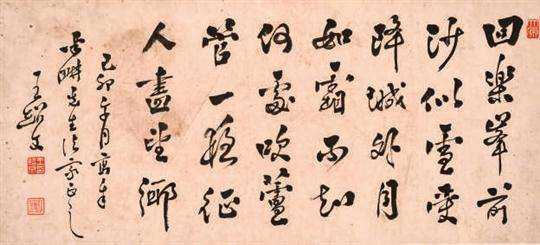 回樂峯前
沙似雪受
降城外月
如霜不知
何處吹蘆
管一夜征
人盡望鄉
己卯 月
先生法家正之
王 文